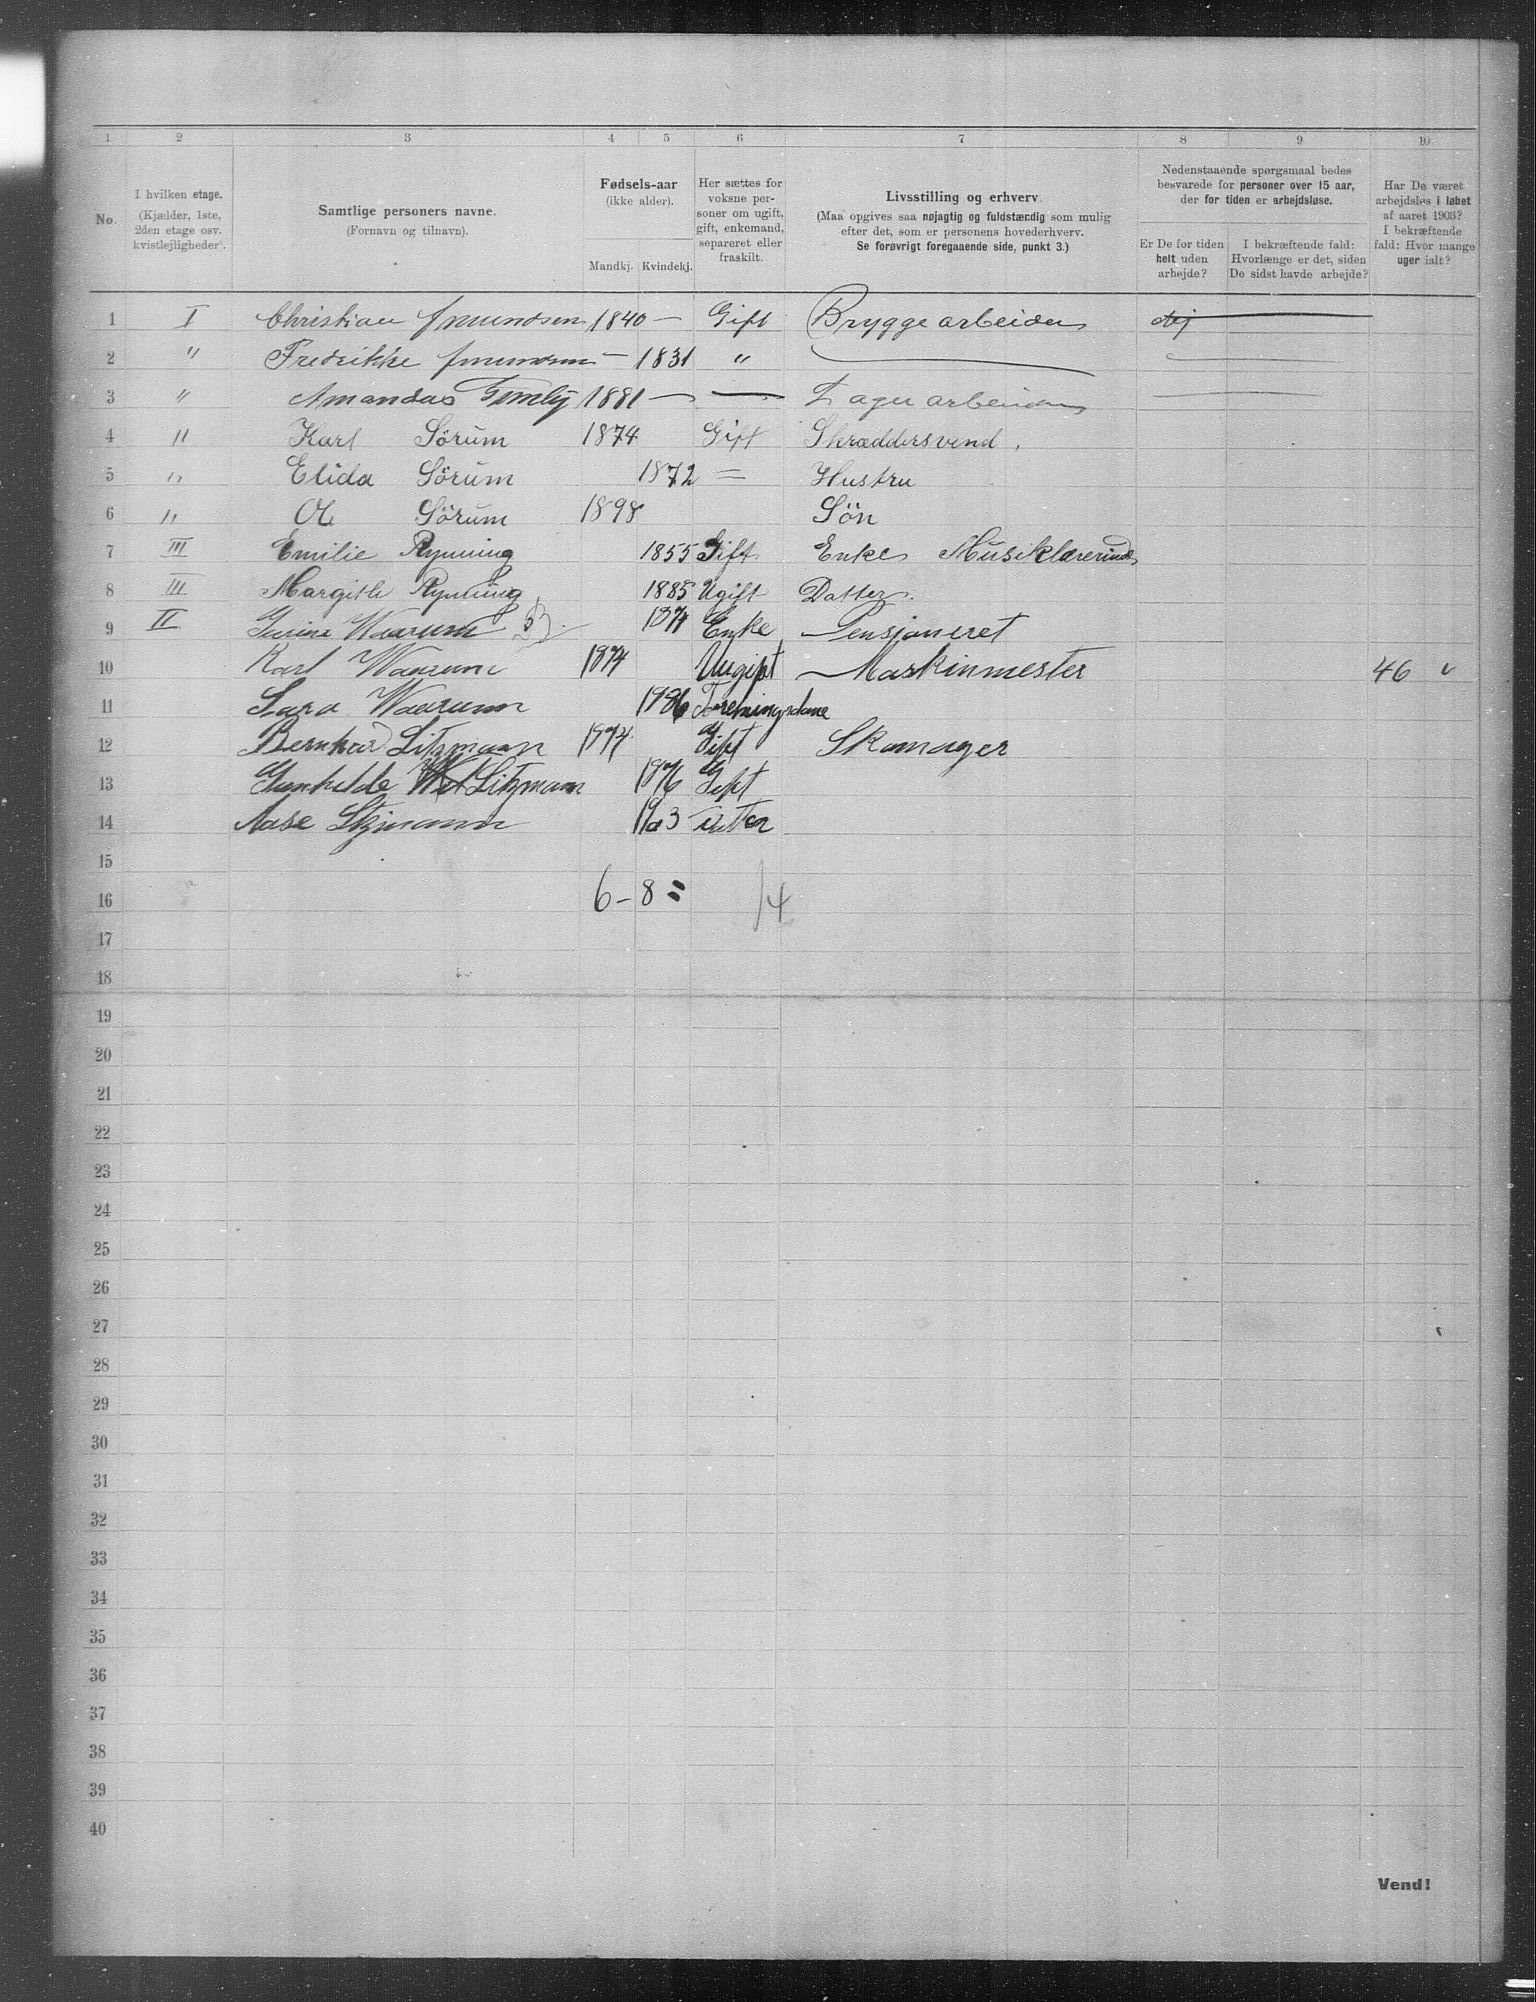 1 2 3 4 5 6 7 8 9 10
No.
I hvilken etage.
(Kjælder, 1ste,
2den etage osv.
kvistlejligheder).
Samtlige personers navne.
(Fornavn og tilnavn).
Fødsels-aar
(ikke alder).
Mandkj. Kvindekj.
Her sættes for
voksne per-
soner om ugift,
gift, enkemand,
separeret eller
fraskilt.
Livsstilling og erhverv
(Maa opgives saa nøjagtig og fuldstændig som mulig
efter det, som er personens hovederhverv.
Se forøvrigt foregaaende side, punkt 3.)
Nedenstaaende spørgsmaal bedes
besvarede for personer over 15 aar,
der for tiden er arbejdsløse.
Er De for tiden
helt uden
arbejde?
I bekræftende fald:
Hvorlænge er det, siden
De sidst havde arbejde?
Har De været
arbejdsløs i løbet
af aaret 1903?
I bekræftende
fald: Hvor mange
uger ialt?
1 I Christian Amundsen 1840 — Gift Bryggearbeider
2 " Fredrikke Amundsen — 1831 "
3 " Amandus 1881 — — Lagerarbeider
4 " Karl Sörum 1874 Gift Skræddersvend.
5 " Elida Sörum 1872 = Hustru
6 " Ole Sörum 1898 Sön
7 III Emilie Rynning 1855 Gift Enke Musiklærerinde
8 III Margithe Rynning 1885 Ugift Datter.
9 II Waarum Enke Pensjoneret
10 Karl Waarum 1874 Uugift Maskinmester 46 v
11 Sara Waarum Foreningsdame
12 Bernhard Litzmann 1874 Gift Skomager
13 Gunhilde Litzmann 1876 Gift
14 Aase Litzmann 1903
15
16 6 - 8 = 14
17
18
19
20
21
22
23
24
25
26
27
28
29
30
31
32
33
34
35
36
37
38
39
40
Vend!